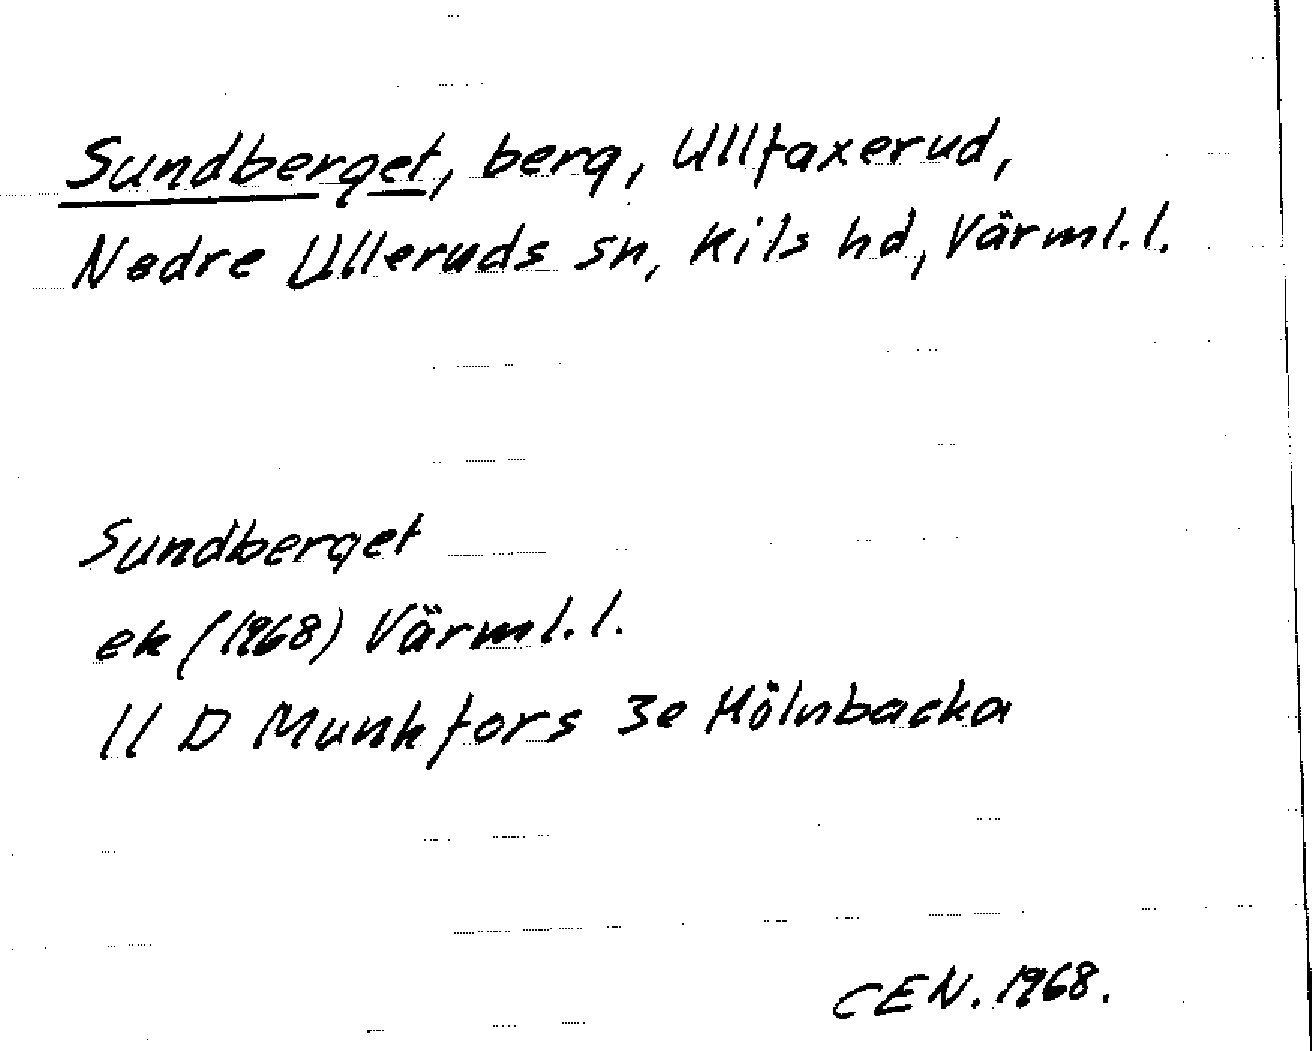 Sundberget, berg, Ullfaxerud,
Nedre Ulleruds sn, Kils hd, Värml. l.
Sundberget
ek (1968) Värml. l.
11 D Munkfors 3e Mölnbacka
CEN. 1968.